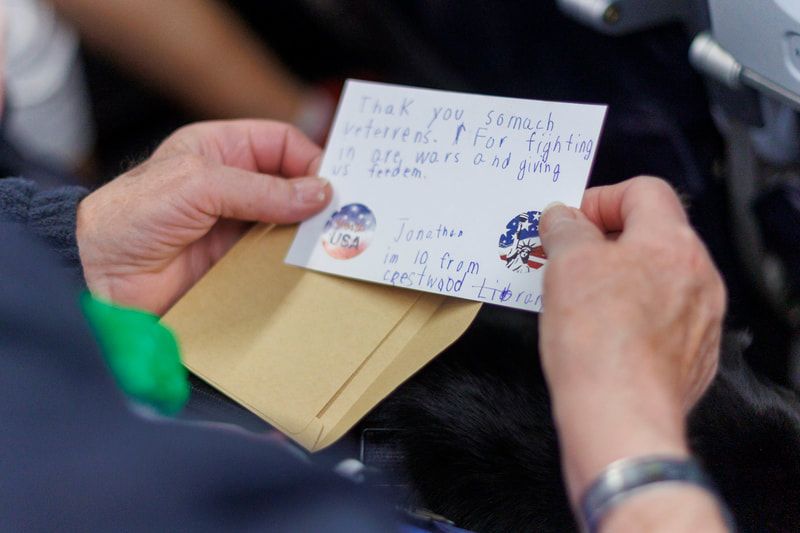 Thak you somach
veterrens. For fighting
in are wars and giving
us feedem.
USA
Jonathan
im 10 from
crestwood Librar